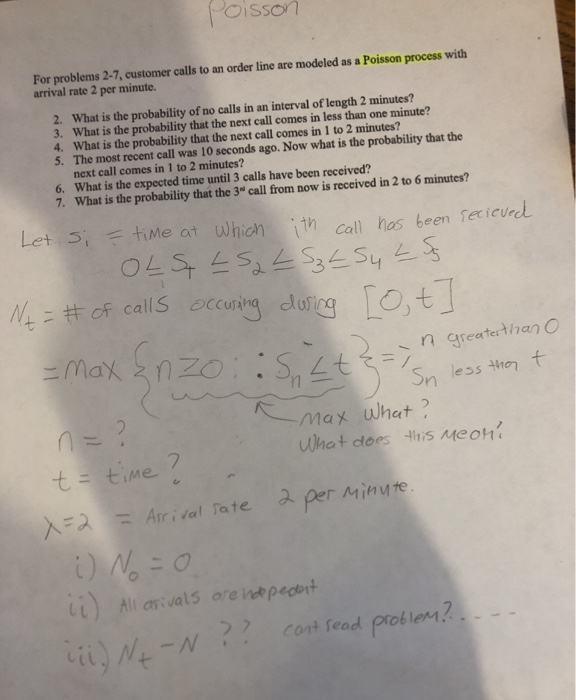 Poisson
For problems 2-7, customer calls to an order line are modeled as a Poisson process with
arrival rate 2 per minute.
2. What is the probability of no calls in an interval of length 2 minutes?
3. What is the probability that the next call comes in less than one minute?
4. What is the probability that the next call comes in 1 to 2 minutes?
5. The most recent call was 10 seconds ago. Now what is the probability that the
next call comes in 1 to 2 minutes?
6. What is the expected time until 3 calls have been received?
7. What is the probability that the 3rd call from now is received in 2 to 6 minutes?
Let Si = time at which ith call has been recieved
0 ≤ S1 ≤ S2 ≤ S3 ≤ S4 ≤ S5
Nt = # of calls occuring during [0,t]
= max {n≥0 : Sn ≤ t} => n greater than 0
Sn less then t
max what?
n = ? What does this mean?
t = time?
λ=2 = Arrival rate 2 per minute.
i) N0 = 0
ii) All arivals are
iii) Nt - N ?? cant read problem?....